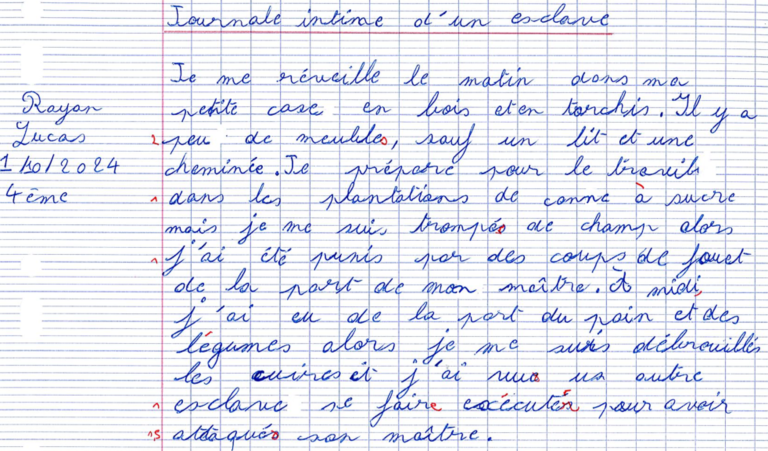 Journale intime d'un esclave
Je me réveille le matin dans ma
petite case en bois et en torchis. Il y a
Rayan
Lucas
1/10/2024
4ème
2 peu de meubles, sauf un lit et une
cheminée. Je prépare pour le travail
1 dans les plantations de canne à sucre
mais je me suis trompés de champ alors
1 j'ai été punis par des coups de fouet
de la part de mon maître. À midi,
j'ai eu de la part du pain et des
légumes alors je me suis débrouillés
les cuires et j'ai un autre
1 esclave se faire exécuter pour avoir
15 attaqués son maître.